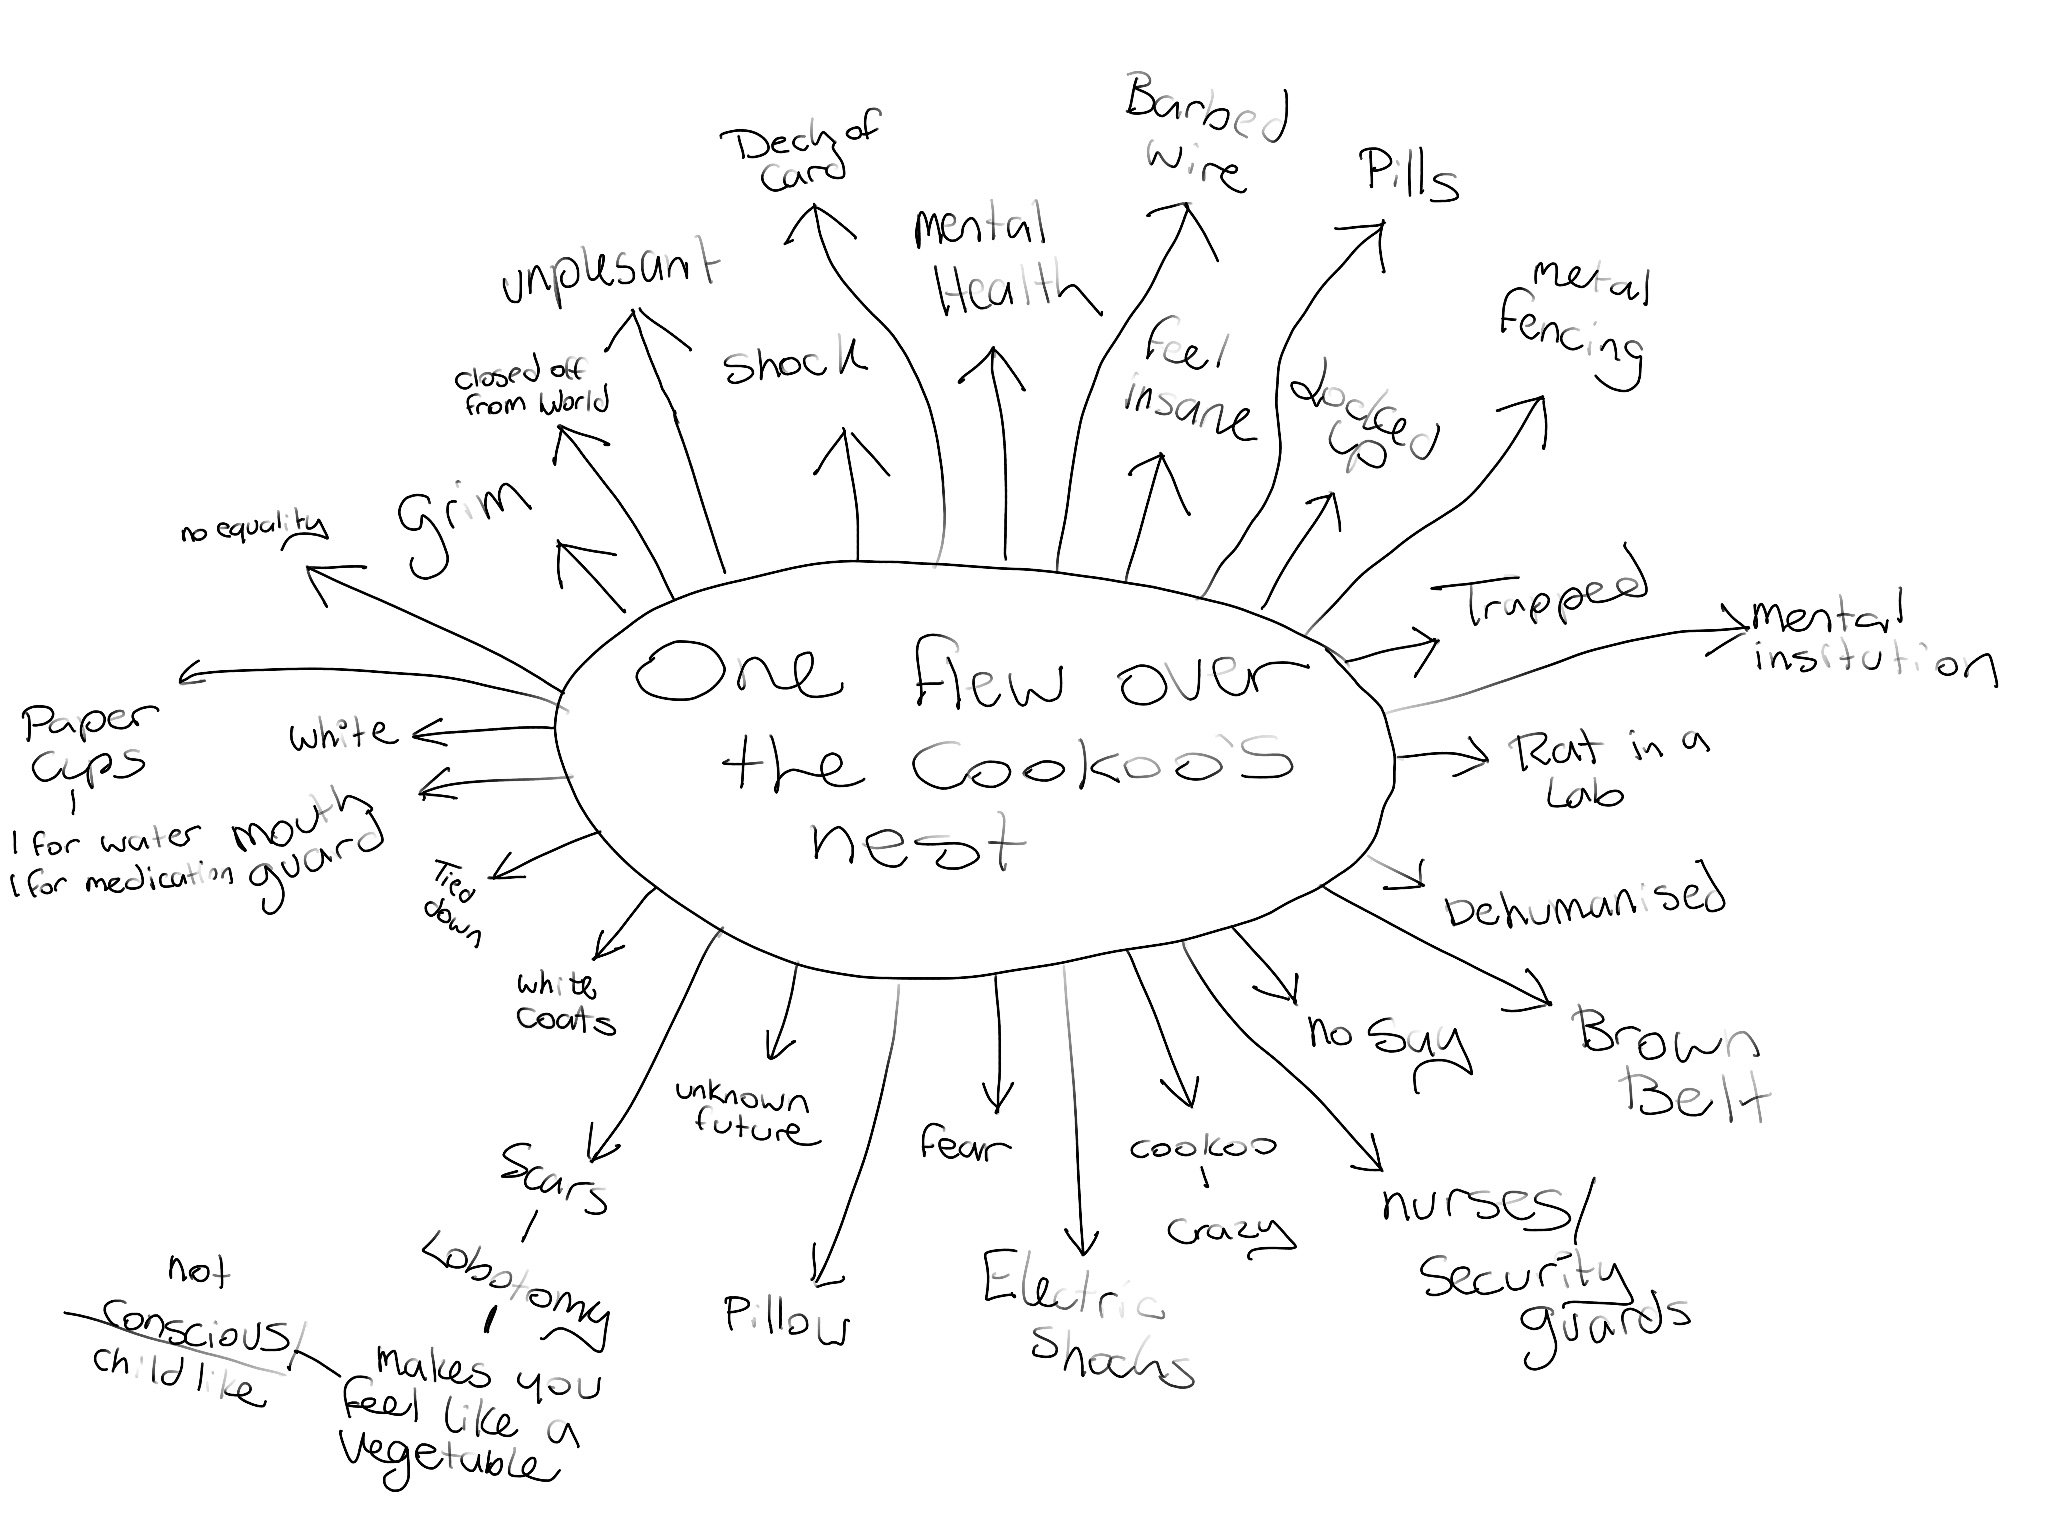 One flew over
the Cookoo's
nest
Deck of
Card
mental
Health
Barbed
wire
Pills
metal
fencing
feel
insane
Locked
up
Trapped
mental
insitution
Rat in a
Lab
Dehumanised
Brown
Belt
no say
nurses/
security
guards
cookoo
crazy
Electric
Shocks
fear
Pillow
unknown
future
Scars
Lobotomy
makes you
feel like a
vegetable
not
conscious/
childlike
white
coats
Tied
down
mouth
guard
white
Paper
cups
1 for water
1 for medication
no equality
grim
closed off
from world
unplesant
shock